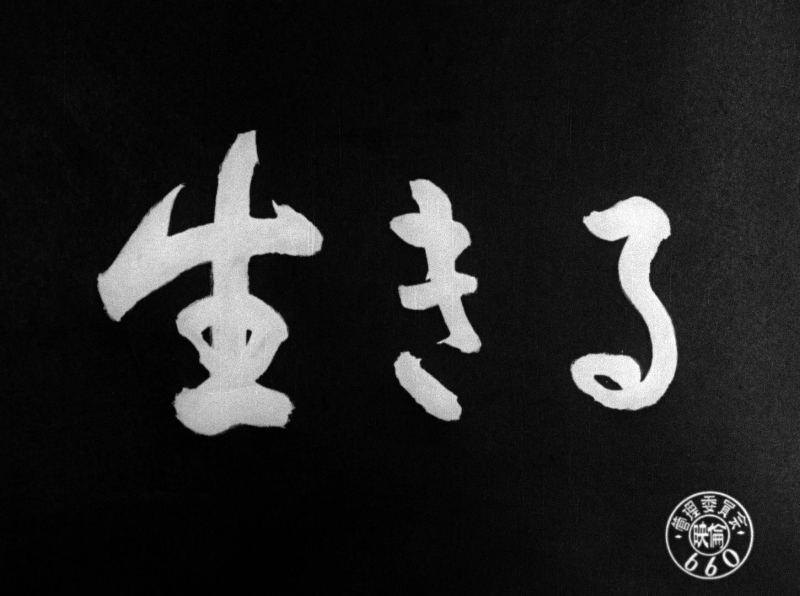 生きる
管理委員会
映倫
660